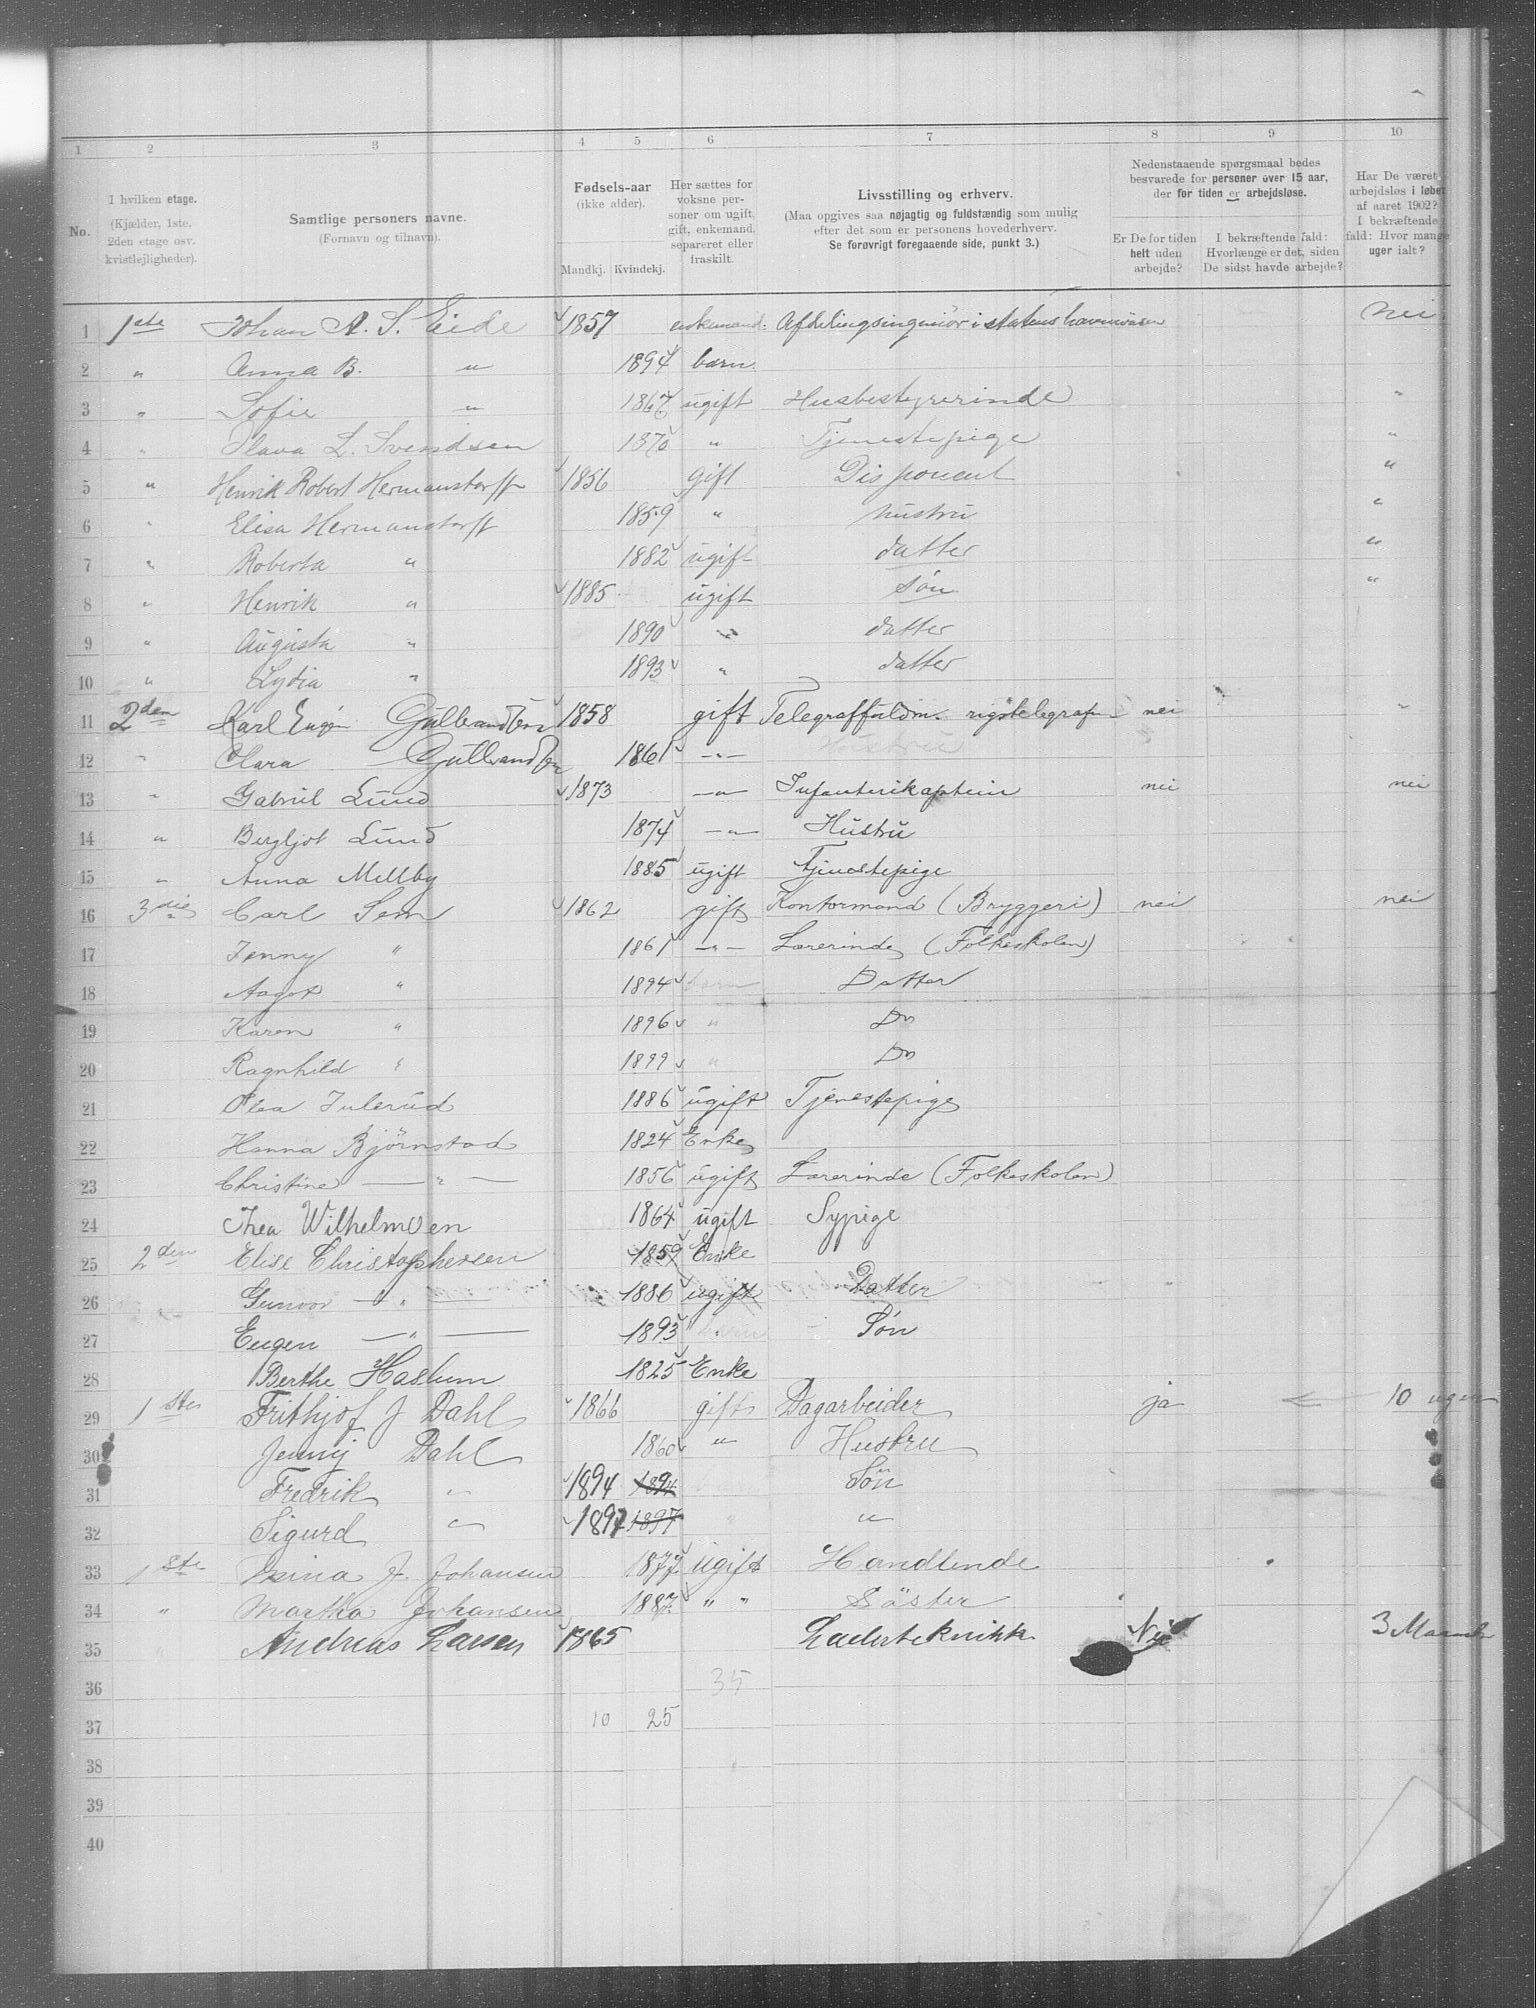 1 2 3 4 5 6 7 8 9 10
No.
I hvilken etage.
(Kjælder, 1ste, 2den etage osv. kvistlejligheder).
Samtlige personers navne.
(Fornavn og tilnavn).
Fødsels-aar
(ikke alder).
Mandkj. Kvindekj.
Her sættes for voksne personer om ugift, gift, enkemand, separeret eller fraskilt.
Livsstilling og erhverv.
(Maa opgives saa nøjagtig og fuldstændig som mulig efter det som er personens hovederhverv.
Se forøvrigt foregaaende side, punkt 3.)
Nedenstaaende spørgsmaal bedes besvarede for personer over 15 aar, der for tiden er arbejdsløse.
Er De for tiden helt uden arbejde?
I bekræftende fald: Hvorlænge er det, siden De sidst havde arbejde?
Har De været arbejdsløs i løbet af aaret 1902? I bekræftende fald: Hvor mange uger ialt?
1 1ste Johan A. S. Eide 1857 enkemand. Afdelingsingeniør i statens havnevæsen nei
2 " Anna B. " 1894 barn
3 " Sofie " 1867 ugift Husbestyrerinde "
4 " Olava L. Svendsen 1870 " Tjenestepige "
5 " Henrik Robert Hermanstorff 1856 gift Disponent "
6 " Elisa Hermanstorff 1859 " hustru "
7 " Roberta " 1882 ugift datter "
8 " Henrik " 1885 ugift søn "
9 " Augusta " 1890 " datter
10 " Lydia " 1893 " datter
11 2den Karl Eugén Gulbrandsen 1858 gift Telegraffuldm. rigstelegrafen nei "
12 " Clara Gulbrandsen 1861 " Hustru
13 " Gabriel Lund 1873 " Infanterikaptein nei nei
14 " Bergljot Lund 1874 " Hustru
15 " Anna Mellby 1885 ugift Tjenestepige
16 3die Carl Sem 1862 gift Kontormand (Bryggeri) nei nei
17 Jenny " 1861 " Lærerinde (Folkeskolen)
18 Aagot " 1894 barn Datter
19 Karen " 1896 " Do
20 Ragnhild " 1899 " Do
21 Olea Julerud 1886 ugift Tjenestepige
22 Hanna Bjørnstad 1824 Enke
23 Christine " 1856 ugift Lærerinde (Folkeskolen)
24 Thea Wilhelmsen 1864 ugift Sypige
25 2den Elise Christophersen 1859 Enke
26 Gunvor " 1886 ugift Datter
27 Eugen " 1893 barn Søn
28 Berthe Haslum 1825 Enke
29 1ste Frithjof J Dahl 1866 gift Dagarbeider ja 10 uger
30 Jenny Dahl 1860 " Hustru
31 Fredrik " 1894 1894 Søn
32 Sigurd " 1897 1897 " "
33 1ste J. Johansen 1877 ugift Handlende
34 " Martha Johansen 1887 " " Søster
35 Andreas Larsen 1865 Læderteknikk Nei 3 Maaneder
36 35
37 10 25
38
39
40